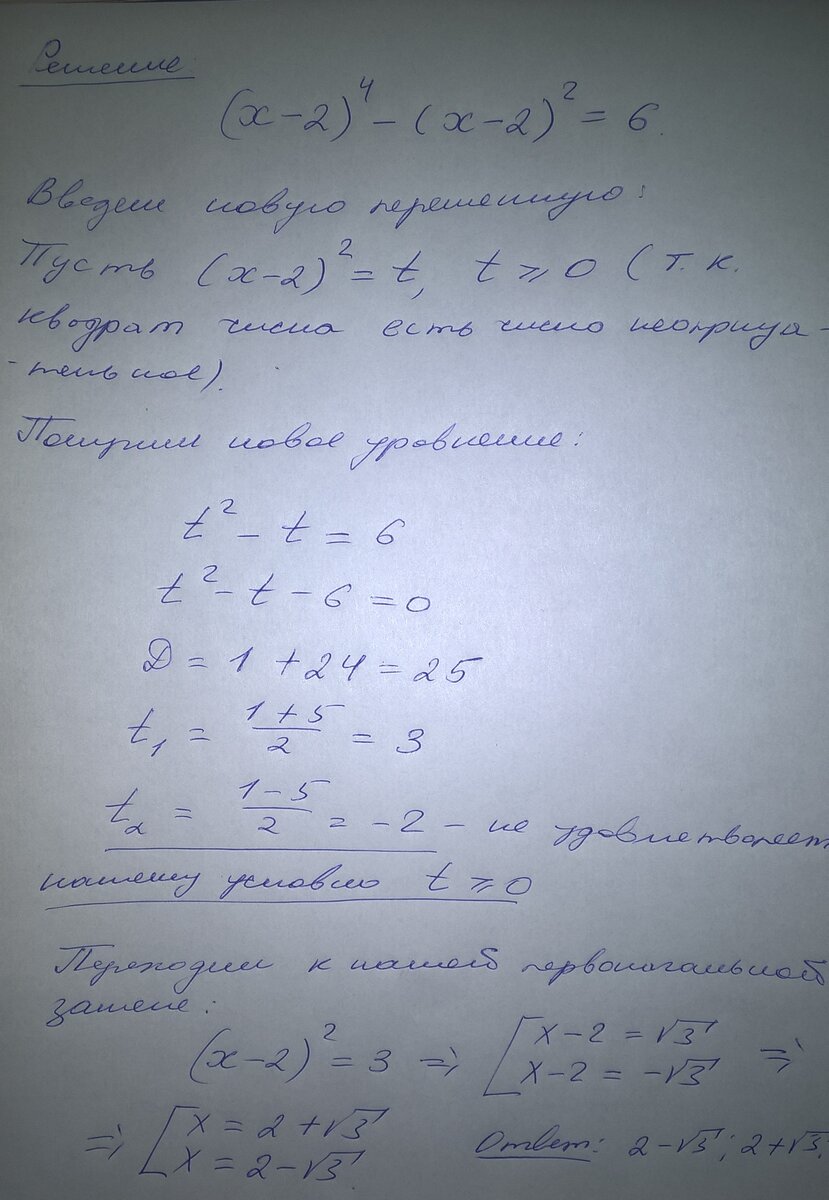 Решение
(x-2)⁴ - (x-2)² = 6.
Введем новую переменную:
Пусть (x-2)² = t, t ⩾ 0 (т.к.
квадрат числа есть число неотрица-
-тельное).
Получим новое уравнение:
t² - t = 6
t² - t - 6 = 0
D = 1 + 24 = 25
t₁ = (1+5)/2 = 3
t₂ = (1-5)/2 = -2 - не удовлетворяет
нашему условию t ⩾ 0
Переходим к нашей первоначальной
замене:
(x-2)² = 3 ⇒ [ x-2 = √3 ⇒
x-2 = -√3
⇒ [ x = 2+√3
x = 2-√3 Ответ: 2-√3; 2+√3.